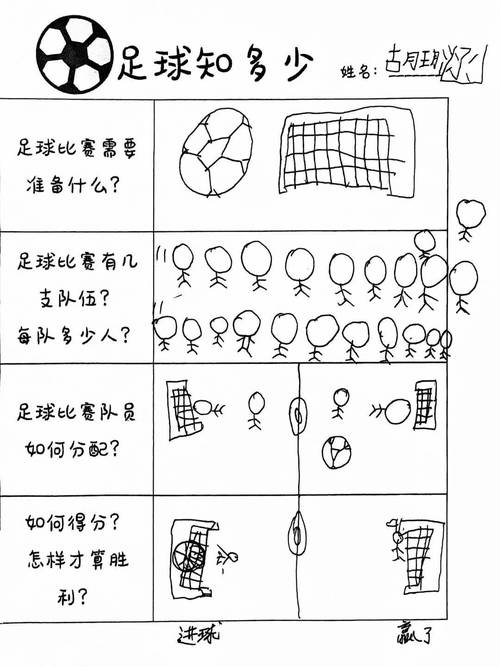 足球知多少
姓名:
足球比赛需要
准备什么?
足球比赛有几
支队伍?
每队多少人?
足球比赛队员
如何分配?
如何得分?
怎样才算胜
利?
进球
赢了